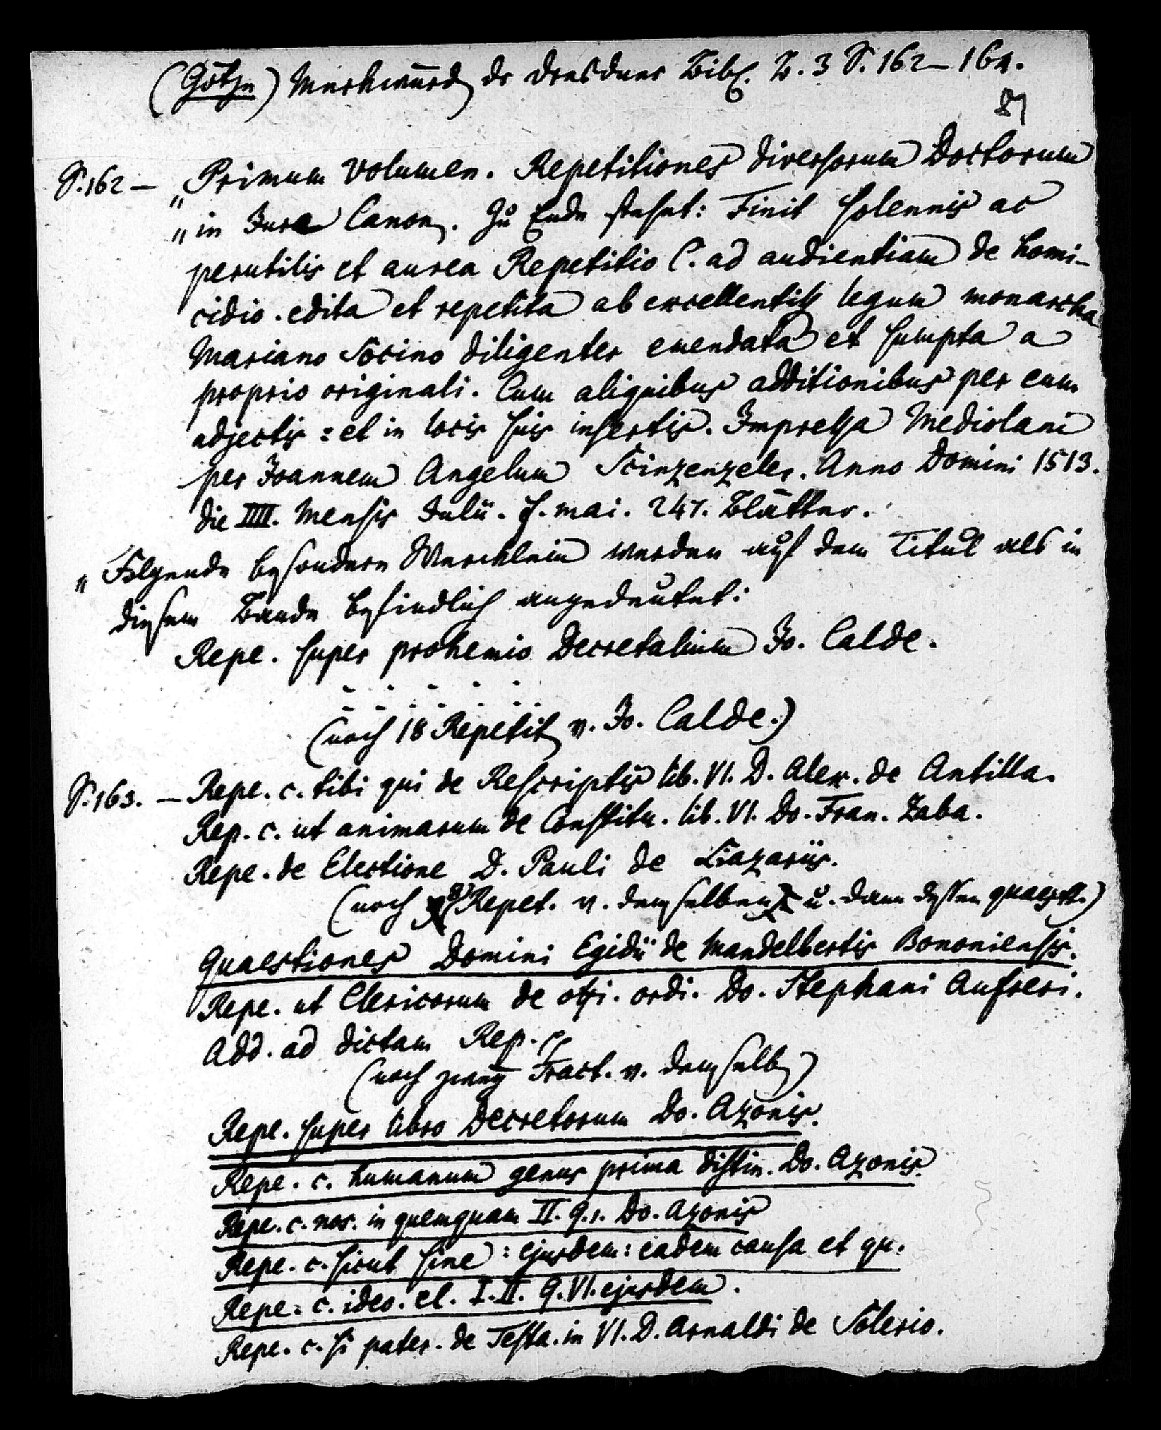 (Götze) Merkwürd. der Dresdner Bibl. B. 3 S. 162 – 164.
87
S. 162 – „Primum Volumen. Repetitiones diversorum Doctorum
„in Jure Canon. Zu Ende stehet: Finit solennis ac
perutilis et aurea Repetitio C. ad audientiam de homi-
cidio. edita et repetita ab excellentiss. legum monarcha
Mariano Socino diligenter emendata et sumpta a
proprio originali. Cum aliquibus additionibus per eum
adjectis: et in locis suis insertis. Impressa Mediolani
per Joannem Angelum Scinzenzeler. Anno Domini 1513.
die IIII. Mensis Julii. f. mai. 247. Blätter.
„Folgende besondere Wercklein werden auf dem Titul als in
diesem Bande befindlich angedeutet:
Repe. super prohemio Decretalium Jo. Calde.
(noch 18 Repetit. v. Jo. Calde.)
S. 163. – Repe. c. tibi qui de Rescriptis lib. VI. D. Alex. de Antilla.
Rep. c. ut animarum de Constitu. lib. VI. Do. Fran. Zaba.
Repe. de Electione D. Pauli de Liazariis.
(noch Repet. v. demselben u. dann dessen quaestt.)
Quaestiones Domini Egidii de Mandelbertis Bononiensis.
Repe. ut Clericorum de offi. ordi. Do. Stephani Aufreri.
Add. ad dictam Rep.
(noch zwey Tract. v. demselb.)
Repe. super libro Decretorum Do. Azonis.
Repe. c. humanum genus prima distin. Do. Azonis.
Repe. c. nos. in quemquam II. q. 1. Do. Azonis
Repe. c. sicut sine: ejusdem: eadem causa et qu.
Repe: c. ideo. el. I. II. q. VI. ejusdem.
Repe. c. si pater. de Testa. in VI. D. Arnaldi de Solerio.